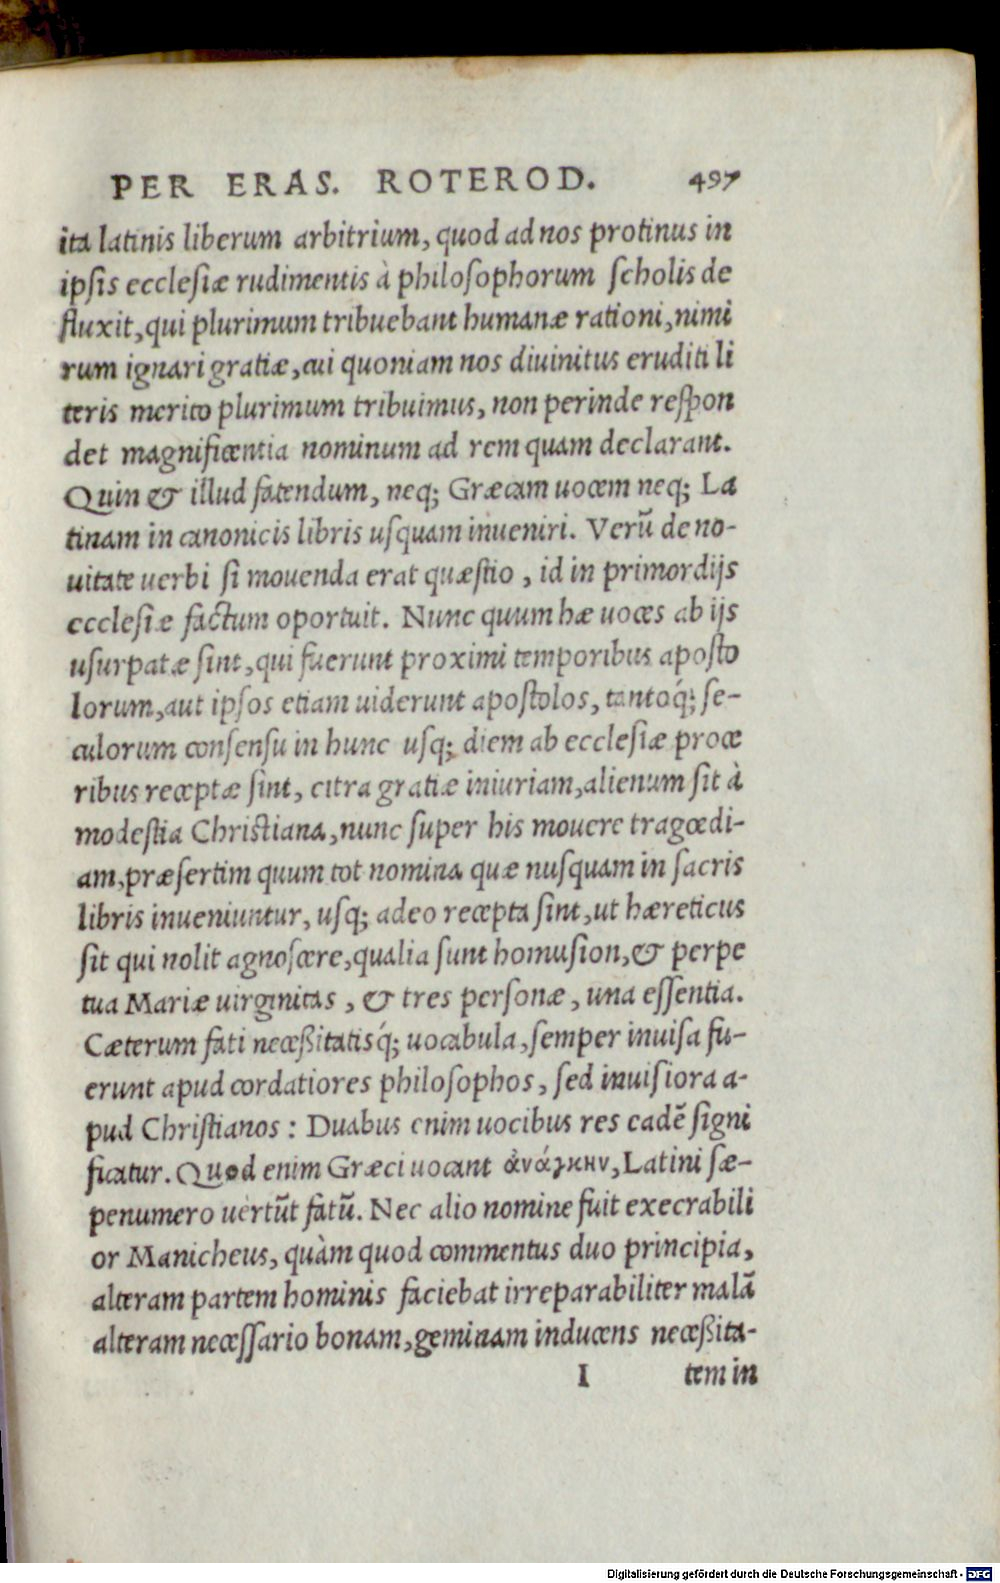 PER ERAS. ROTEROD. 497
ita latinis liberum arbitrium, quod ad nos protinus in
ipsis ecclesiæ rudimentis à philosophorum scholis de
fluxit, qui plurimum tribuebant humanæ rationi, nimi
rum ignari gratiæ, cui quoniam nos diuinitus eruditi li
teris merito plurimum tribuimus, non perinde respon
det magnificentia nominum ad rem quam declarant.
Quin & illud fatendum, neq; Græcam uocem neq; La
tinam in canonicis libris usquam inueniri. Verũ de no-
uitate uerbi si mouenda erat quæstio, id in primordijs
ecclesiæ factum oportuit. Nunc quum hæ uoces ab ijs
usurpatæ sint, qui fuerunt proximi temporibus aposto
lorum, aut ipsos etiam uiderunt apostolos, tantoq́; se-
culorum consensu in hunc usq; diem ab ecclesiæ proce
ribus receptæ sint, citra gratiæ iniuriam, alienum sit à
modestia Christiana, nunc super his mouere tragœdi-
am, præsertim quum tot nomina quæ nusquam in sacris
libris inueniuntur, usq; adeo recepta sint, ut hæreticus
sit qui nolit agnoscere, qualia sunt homusion, & perpe
tua Mariæ uirginitas, & tres personæ, una essentia.
Cæterum fati neceßitatisq́; uocabula, semper inuisa fu-
erunt apud cordatiores philosophos, sed inuisiora a-
pud Christianos: Duabus enim uocibus res eadẽ signi
ficatur. Quod enim Græci uocant ἀνάγκην, Latini sæ-
penumero uertũt fatũ. Nec alio nomine fuit execrabili
or Manicheus, quàm quod commentus duo principia,
alteram partem hominis faciebat irreparabiliter malã
alteram necessario bonam, geminam inducens neceßita-
I tem in
Digitalisierung gefördert durch die Deutsche Forschungsgemeinschaft - DFG